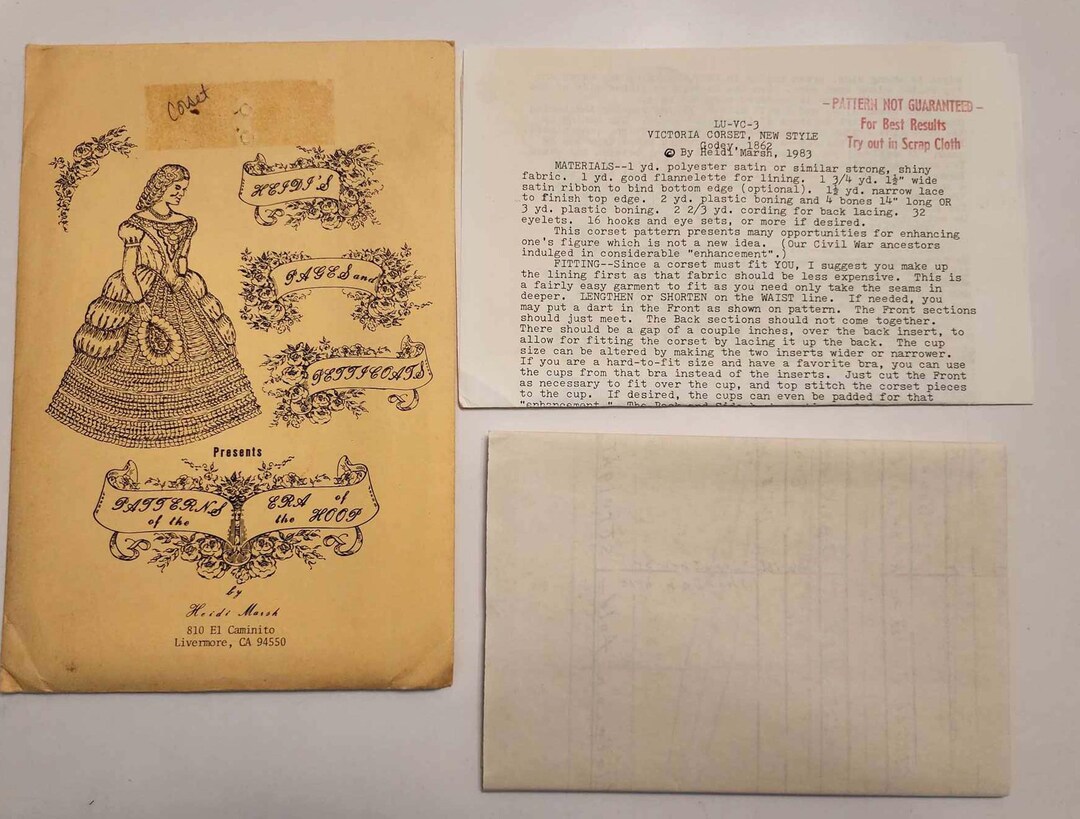 Corset
HEIDI'S
PAGES and
PETTICOATS
Presents
PATTERNS of the ERA of the HOOP
by
Heidi Marsh
810 El Caminito
Livermore, CA 94550
-PATTERN NOT GUARANTEED-
For Best Results
Try out in Scrap Cloth
LU-VC-3
VICTORIA CORSET, NEW STYLE
Godey, 1862
© By Heidi Marsh, 1983
MATERIALS--1 yd. polyester satin or similar strong, shiny
fabric. 1 yd. good flannelette for lining. 1 3/4 yd. 1½" wide
satin ribbon to bind bottom edge (optional). 1½ yd. narrow lace
to finish top edge. 2 yd. plastic boning and 4 bones 14" long OR
3 yd. plastic boning. 2 2/3 yd. cording for back lacing. 32
eyelets. 16 hooks and eye sets, or more if desired.
This corset pattern presents many opportunities for enhancing
one's figure which is not a new idea. (Our Civil War ancestors
indulged in considerable "enhancement".)
FITTING--Since a corset must fit YOU, I suggest you make up
the lining first as that fabric should be less expensive. This is
a fairly easy garment to fit as you need only take the seams in
deeper. LENGTHEN or SHORTEN on the WAIST line. If needed, you
may put a dart in the Front as shown on pattern. The Front sections
should just meet. The Back sections should not come together.
There should be a gap of a couple inches, over the back insert, to
allow for fitting the corset by lacing it up the back. The cup
size can be altered by making the two inserts wider or narrower.
If you are a hard-to-fit size and have a favorite bra, you can use
the cups from that bra instead of the inserts. Just cut the Front
as necessary to fit over the cup, and top stitch the corset pieces
to the cup. If desired, the cups can even be padded for that
"enhancement."